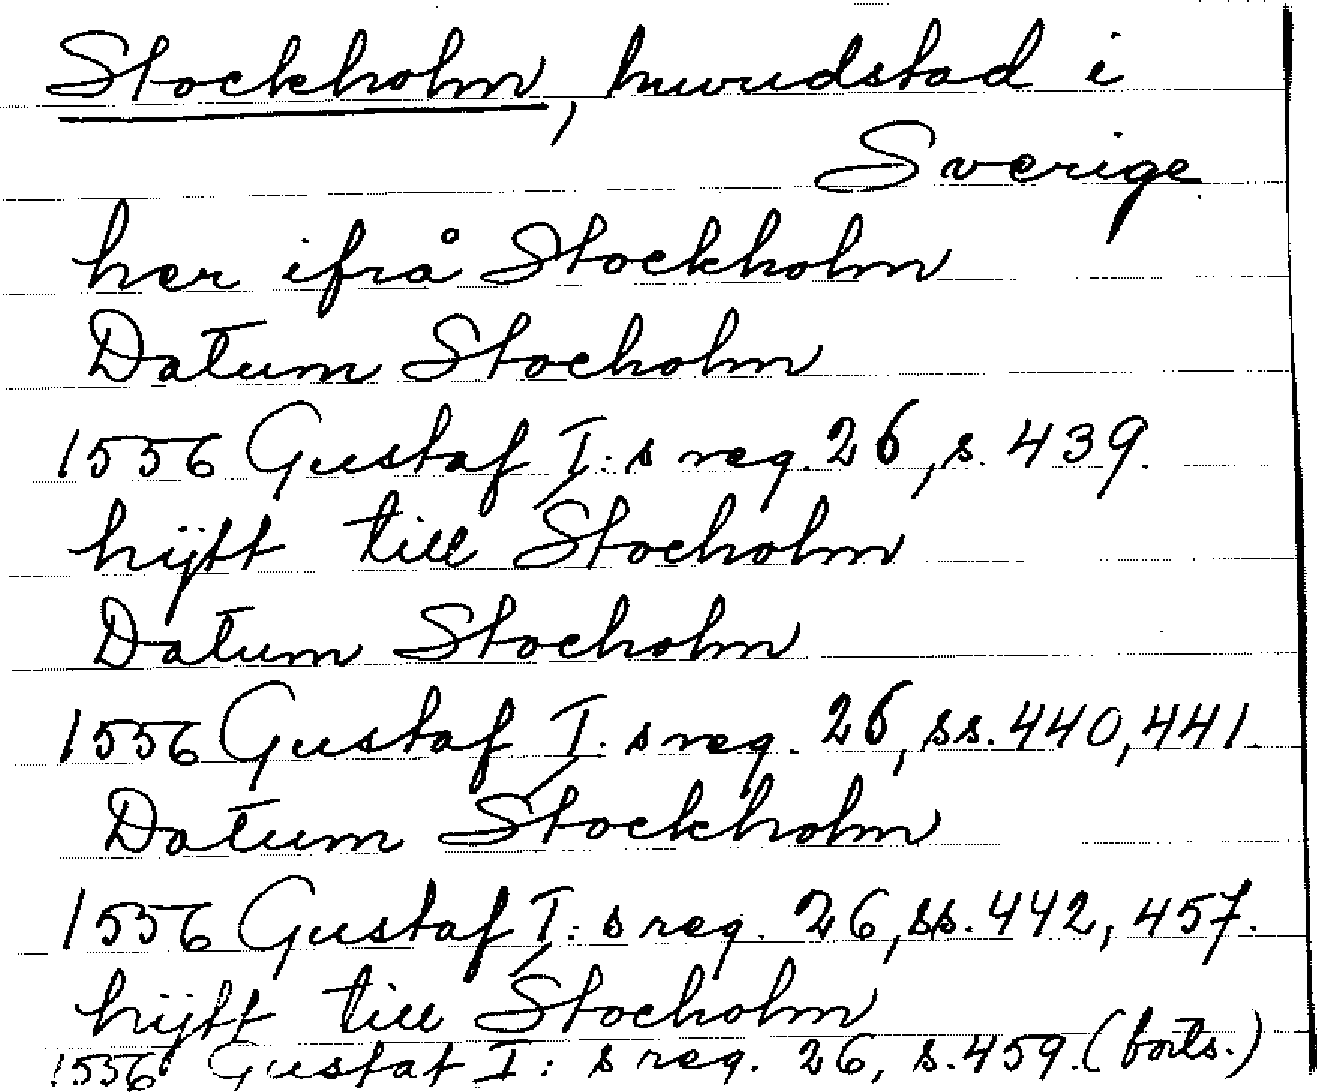 Stockholm, huvudstad i
Sverige
her ifrå Stockholm
Datum Stocholm
1556 Gustaf I:s reg. 26, s. 439.
hijtt till Stocholm
Datum Stocholm
1556 Gustaf I:s reg. 26, ss. 440, 441.
Datum Stockholm
1556 Gustaf I:s reg. 26, ss. 442, 457.
hijtt till Stocholm
1556 Gustaf I:s reg. 26, s. 459. (forts.)